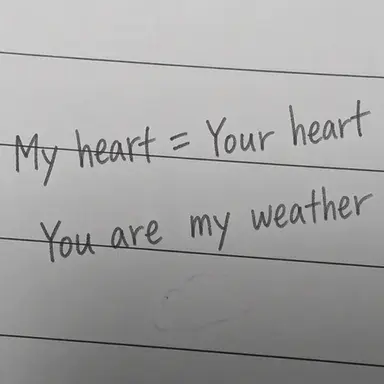 My heart = Your heart
You are my weather